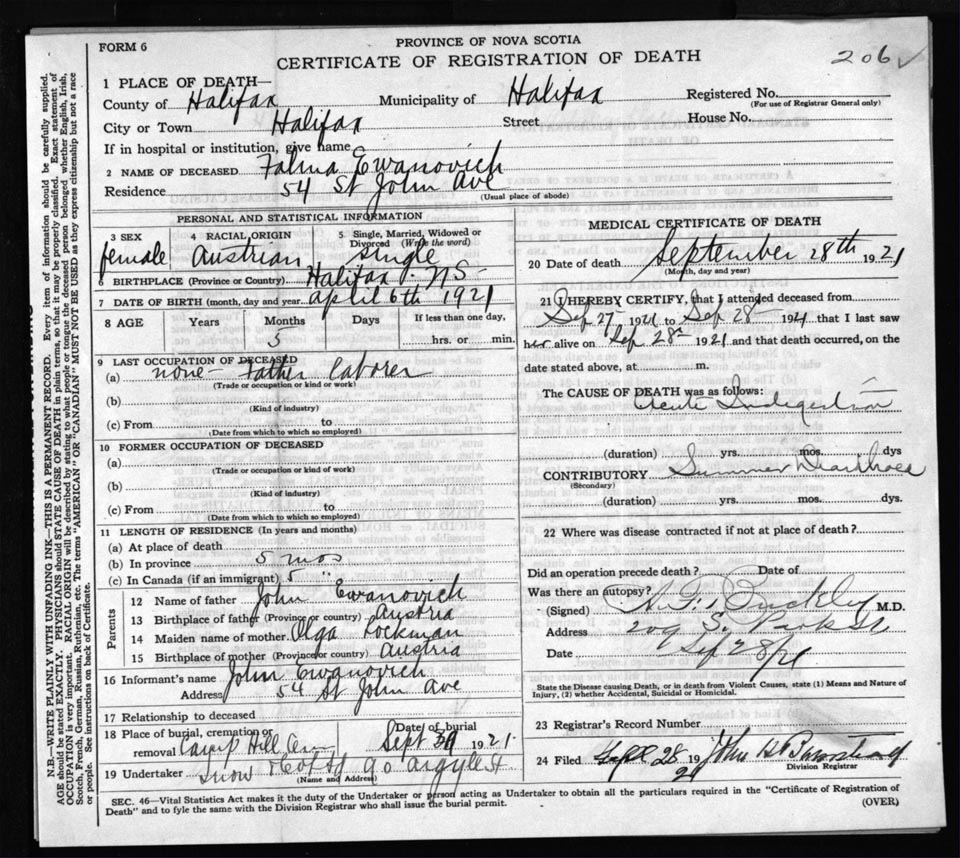 FORM 6
PROVINCE OF NOVA SCOTIA
CERTIFICATE OF REGISTRATION OF DEATH
206 ✓
1 PLACE OF DEATH—
County of Halifax Municipality of Halifax Registered No.
(For use of Registrar General only)
City or Town Halifax Street House No.
If in hospital or institution, give name
2 NAME OF DECEASED Ewanovich
Residence 54 St John Ave
(Usual place of abode)
PERSONAL AND STATISTICAL INFORMATION
3 SEX female
4 RACIAL ORIGIN Austrian
5 Single, Married, Widowed or Divorced (Write the word) Single
6 BIRTHPLACE (Province or Country) Halifax. NS-
7 DATE OF BIRTH (month, day and year) april 6th 1921
8 AGE Years Months Days If less than one day,
5 hrs. or min.
9 LAST OCCUPATION OF DECEASED
(a) none- Father laborer
(Trade or occupation or kind or work)
(b)
(Kind of industry)
(c) From to
(Date from which to which so employed)
10 FORMER OCCUPATION OF DECEASED
(a)
(Trade or occupation or kind of work)
(b)
(Kind of industry)
(c) From to
(Date from which to which so employed)
11 LENGTH OF RESIDENCE (In years and months)
(a) At place of death
(b) In province 5 mos
(c) In Canada (if an immigrant) 5 "
Parents
12 Name of father John Ewanovich
13 Birthplace of father (Province or country) Austria
14 Maiden name of mother Olga Lockman
15 Birthplace of mother (Province or country) Austria
16 Informant's name John Ewanovich
Address 54 St John Ave
17 Relationship to deceased
18 Place of burial, cremation or removal Camp Hill Cem Date of burial Sept 1921.
19 Undertaker Snow 90 Argyle St
(Name and Address)
MEDICAL CERTIFICATE OF DEATH
20 Date of death September 28th 1921
(Month, day and year)
21 I HEREBY CERTIFY, that I attended deceased from
Sep 27 1921 to Sep 28 1921 that I last saw
her alive on Sep 28 1921 and that death occurred, on the
date stated above, at m.
The CAUSE OF DEATH was as follows:
Acute Indigestion
(duration) yrs. mos. dys
CONTRIBUTORY Summer Diarrhoea
(Secondary)
(duration) yrs. mos. dys.
22 Where was disease contracted if not at place of death?
Did an operation precede death? Date of
Was there an autopsy?
(Signed) Buckley M.D.
Address 209 S. Park St
Date Sep 28/21
State the Disease causing Death, or in death from Violent Causes, state (1) Means and Nature of
Injury, (2) whether Accidental, Suicidal or Homicidal.
23 Registrar's Record Number
24 Filed Sept 28 1921 John H
Division Registrar
SEC. 46—Vital Statistics Act makes it the duty of the Undertaker or person acting as Undertaker to obtain all the particulars required in the "Certificate of Registration of
Death" and to fyle the same with the Division Registrar who shall issue the burial permit.
(OVER)
N.B.—WRITE PLAINLY WITH UNFADING INK—THIS IS A PERMANENT RECORD. Every item of information should be carefully supplied.
AGE should be stated EXACTLY. PHYSICIANS should STATE CAUSE OF DEATH in plain terms, so that it may be properly classified. Exact statement of
OCCUPATION is very important. RACIAL ORIGIN will be described by stating to what people or tongue the deceased person belonged whether English, Irish,
Scotch, French, German, Russian, Ruthenian, etc. The terms "AMERICAN" OR "CANADIAN" MUST NOT BE USED as they express citizenship but not a race
or people. See instructions on back of Certificate.